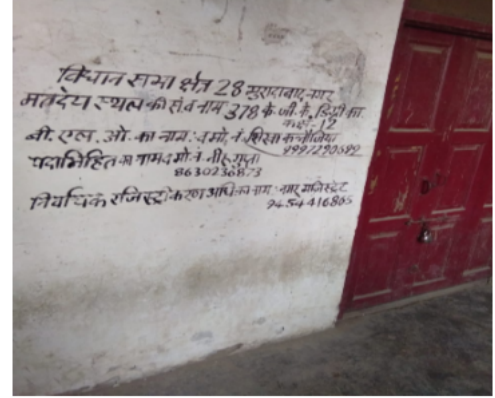 विधान सभा क्षेत्र 28 मुरादाबाद नगर
मतदेय स्थल की सं व नाम 378 के. जी. के. डिग्री का.
कक्ष 12
बी. एल. ओ. का नाम व मो. नं.
पदाभिहित का नाम व मो. नं. नीरू गुप्ता
8630236873
निर्वाचक रजिस्ट्रीकरण अधि का नाम नगर मजिस्ट्रेट
9454416865